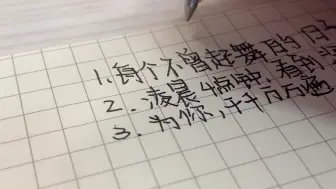 1. 每个不曾起舞的日
2. 凌晨4点钟,看到
3. 为你,千千万万遍